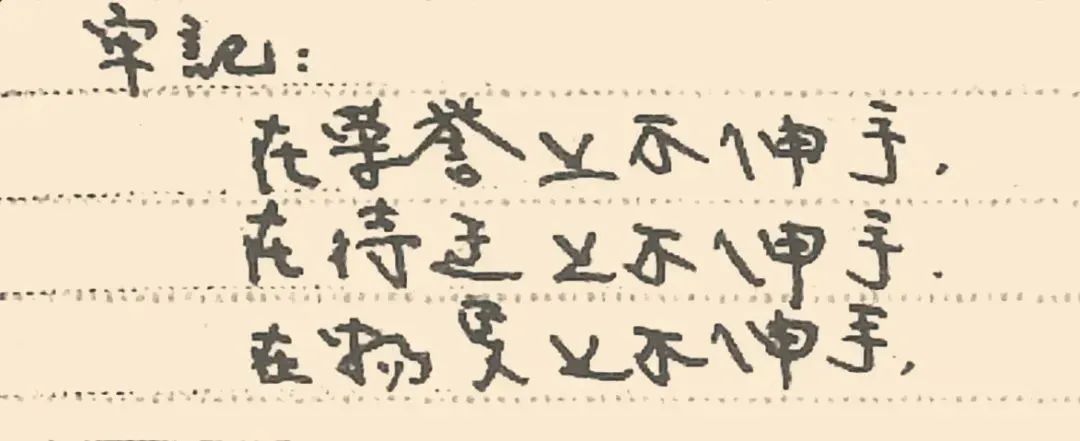 牢記:
在荣誉上不伸手,
在待遇上不伸手.
在物质上不伸手,